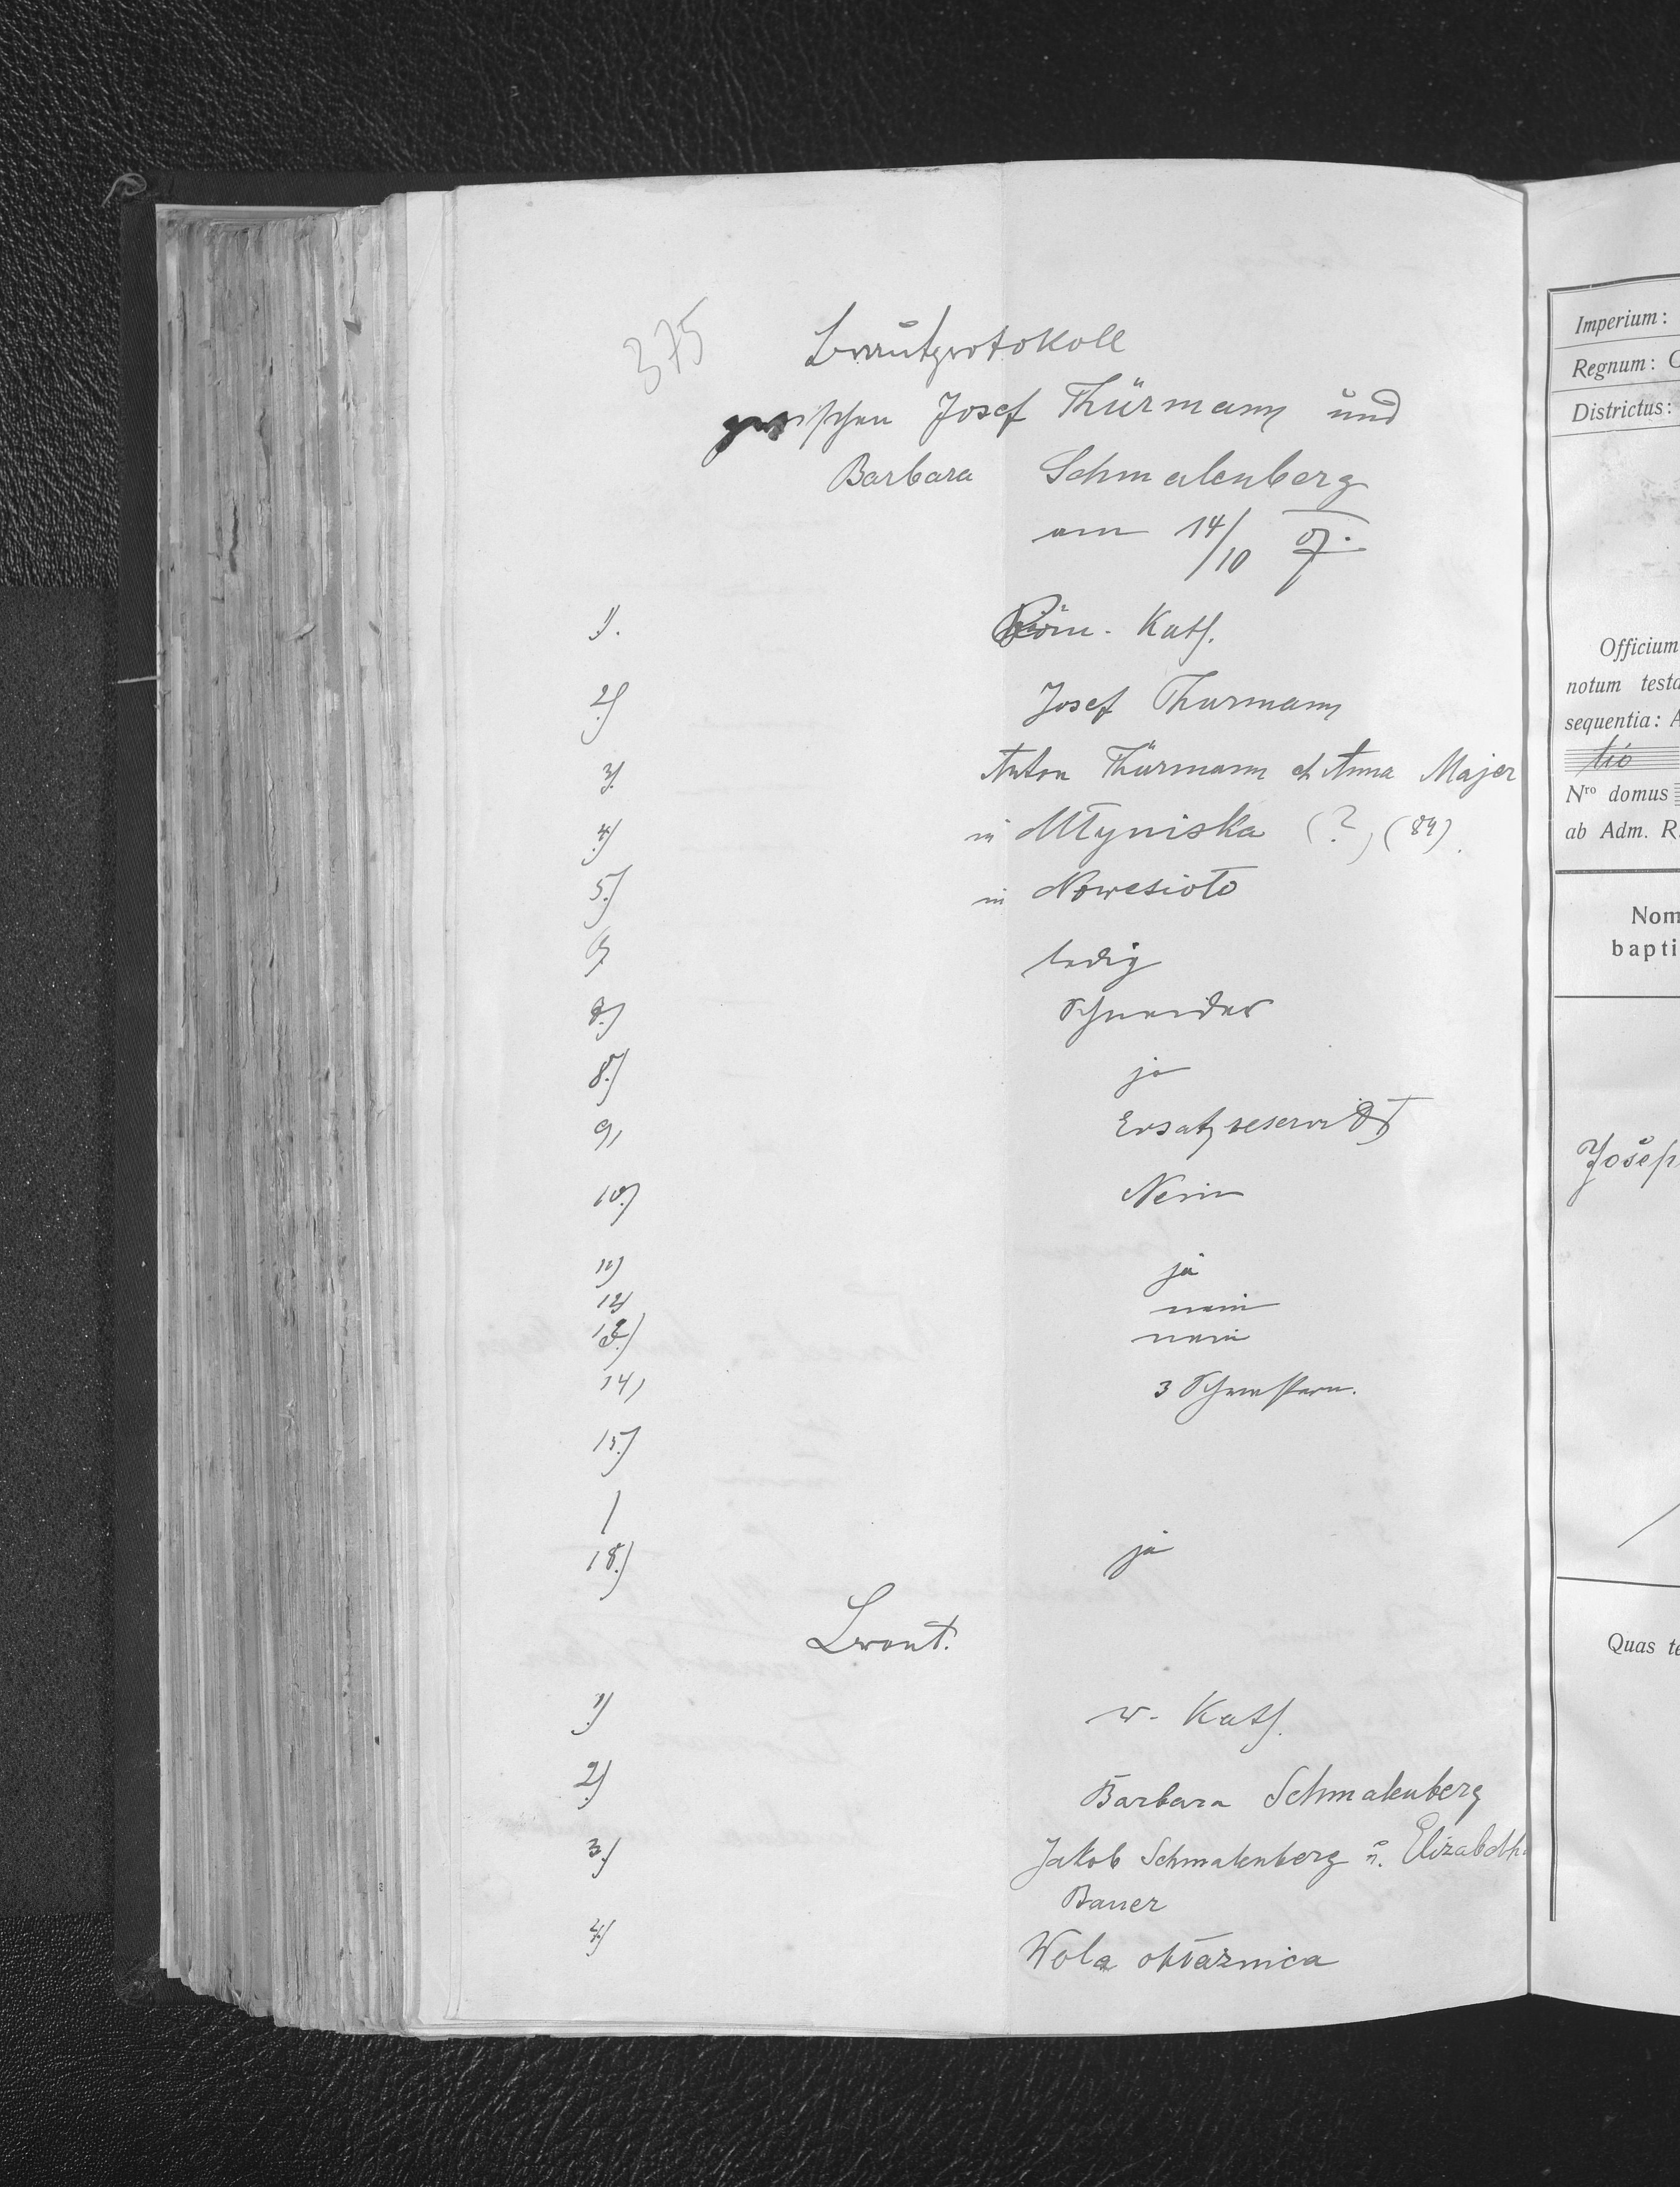 375
Brautprotokoll
zwischen Josef Thürmann und
Barbara Schmalenberg
am 14/10 07.
1). Röm. Kath.
2) Josef Thurmann
3) Anton Thürmann et Anna Majer
4) in Młyniska (?) (84).
5.) in Nowesioło
6) ledig
7.) Schneider
8.) ja
9) Ersatzreservist
10.) Nein
11) ja
12) nein
13.) nein
14) 3 Schwestern.
15.)
/
18.) ja
Braut.
1) r. Kath.
2) Barbara Schmalenberg
3.) Jakob Schmalenberg u. Elizabeth
Bauer
4.) Wola
Imperium:
Regnum:
Districtus:
Officium
notum testa
sequentia: A
tio
Nro domus
ab Adm. R
Nom
bapti
Josep
Quas te